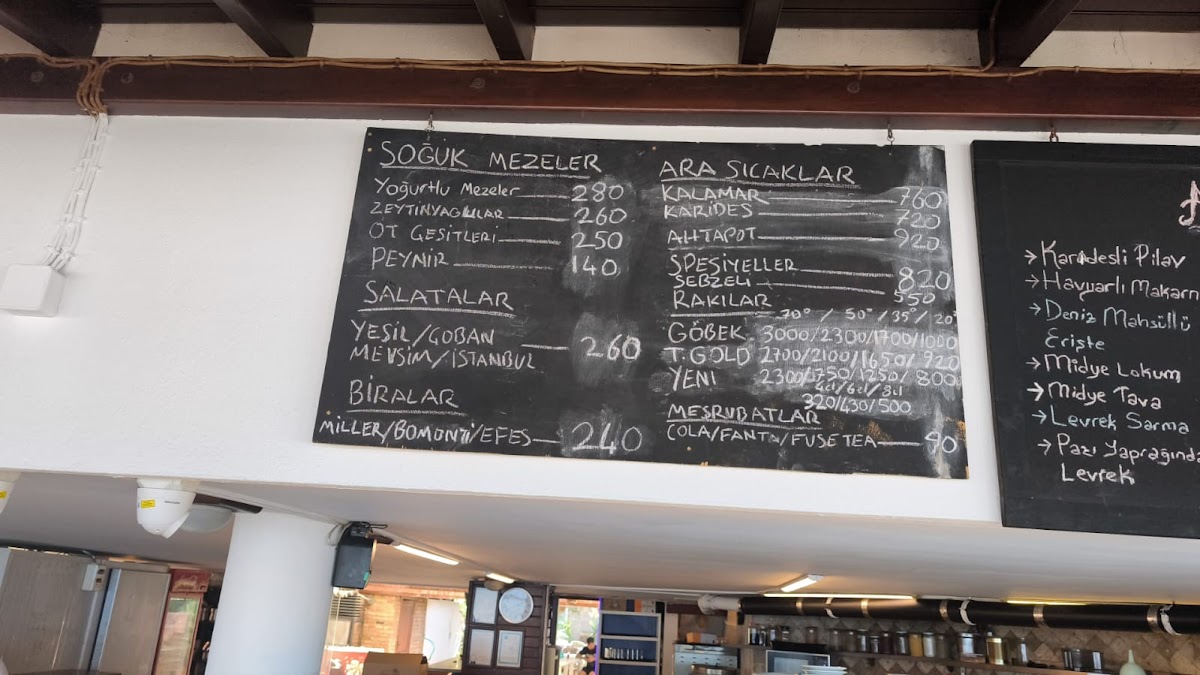 SOĞUK MEZELER
Yoğurtlu Mezeler 280
ZEYTİNYAĞLILAR 260
OT ÇEŞİTLERİ 250
PEYNİR 140
SALATALAR
YEŞİL/ÇOBAN
MEVSİM/İSTANBUL 260
BİRALAR
MİLLER/BOMONTİ/EFES 240
ARA SICAKLAR
KALAMAR 760
KARİDES 720
AHTAPOT 920
SPESİYELLER 820
SEBZELİ 550
RAKILAR
70° / 50° / 35° / 20°
GÖBEK 3000/2300/1700/1000
T.GOLD 2700/2100/1650/920
YENİ 2300/1750/1250/800
4cl/6cl/8cl
320/430/500
MEŞRUBATLAR
COLA/FANTA/FUSE TEA 90
→ Karidesli Pilav
→ Havyarlı Makarn
→ Deniz Mahsüllü
Erişte
→ Midye Lokum
→ Midye Tava
→ Levrek Sarma
→ Pazı Yaprağında
Levrek